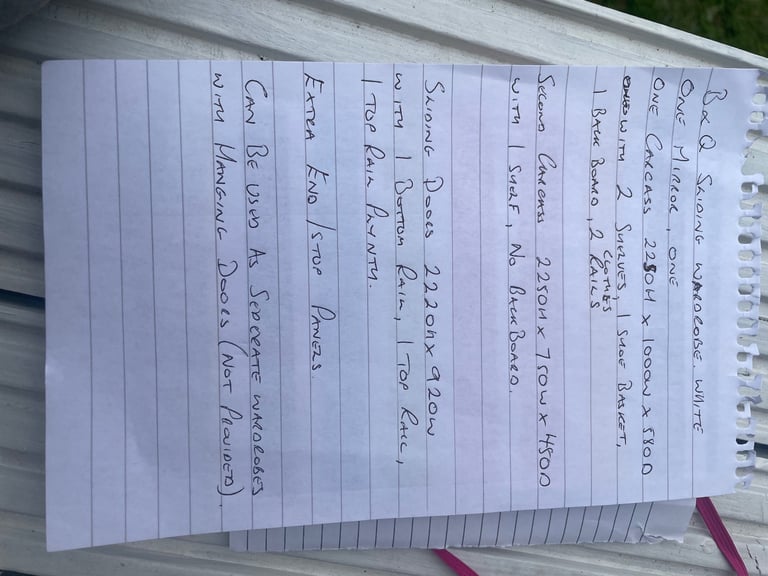 B & Q SLIDING WARDROBE. WHITE
ONE MIRROR, ONE
ONE CARCASS 2250H x 1000W x 580D
WITH 2 SHELVES, 1 SHOE BASKET,
1 BACK BOARD, 2 CLOTHES RAILS
SECOND CARCASS 2250H x 750W x 450D
WITH 1 SHELF, NO BACKBOARD.
SLIDING DOORS 2220H x 920W
WITH 1 BOTTOM RAIL, 1 TOP RAIL,
1 TOP RAIL PLYNTH.
EXTRA END/STOP PANELS.
CAN BE USED AS SEPERATE WARDROBES
WITH HANGING DOORS (NOT PROVIDED).